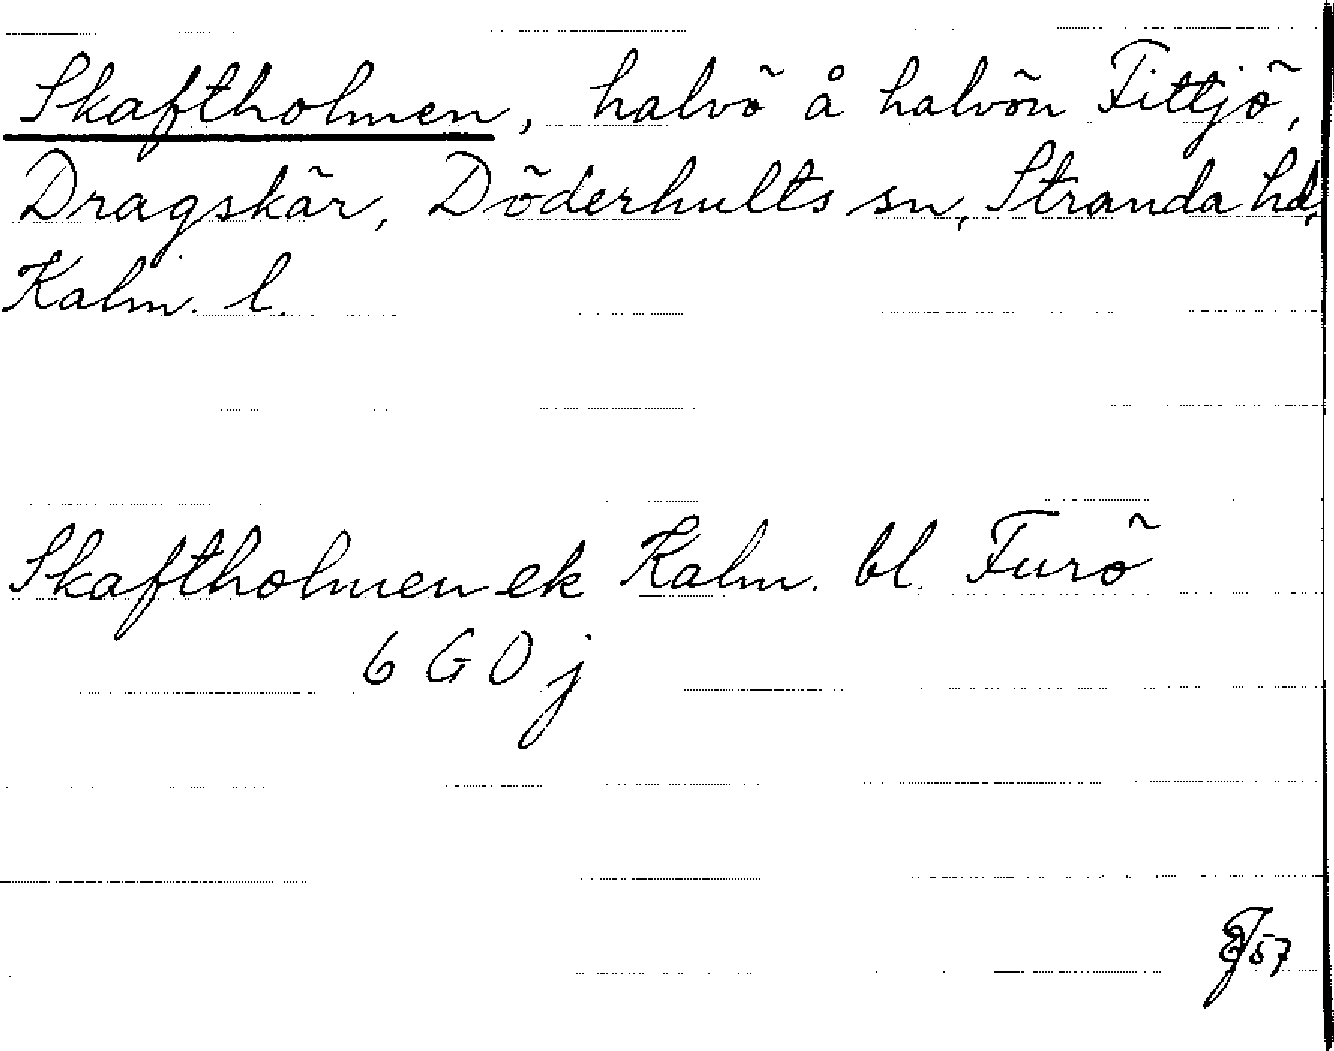 Skaftholmen, halvö å halvön Fittjö,
Dragskär, Döderhults sn, Stranda hd,
Kalm. l.
Skaftholmen ek Kalm. bl. Furö
6 G 0 j
57